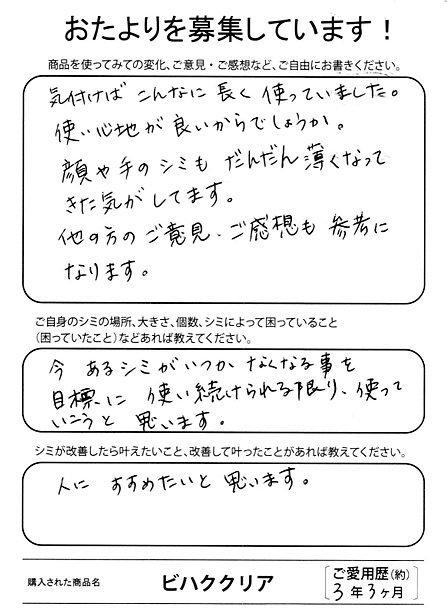 おたよりを募集しています！
商品を使ってみての変化、ご意見・ご感想など、ご自由にお書きください。
気付けば こんなに 長く 使っていました。
使い心地が良いからでしょうか。
顔や手のシミも だんだん 薄くなって
きた気がしてます。
他の方の ご意見、ご感想も 参考に
なります。
ご自身のシミの場所、大きさ、個数、シミによって困っていること
（困っていたこと）などあれば教えてください。
今 あるシミがいつか なくなる事を
目標に 使い続けられる限り、使って
いこうと 思います。
シミが改善したら叶えたいこと、改善して叶ったことがあれば教えてください。
人に すすめたいと 思います。
購入された商品名 ビハククリア ご愛用歴（約）
3年3ヶ月